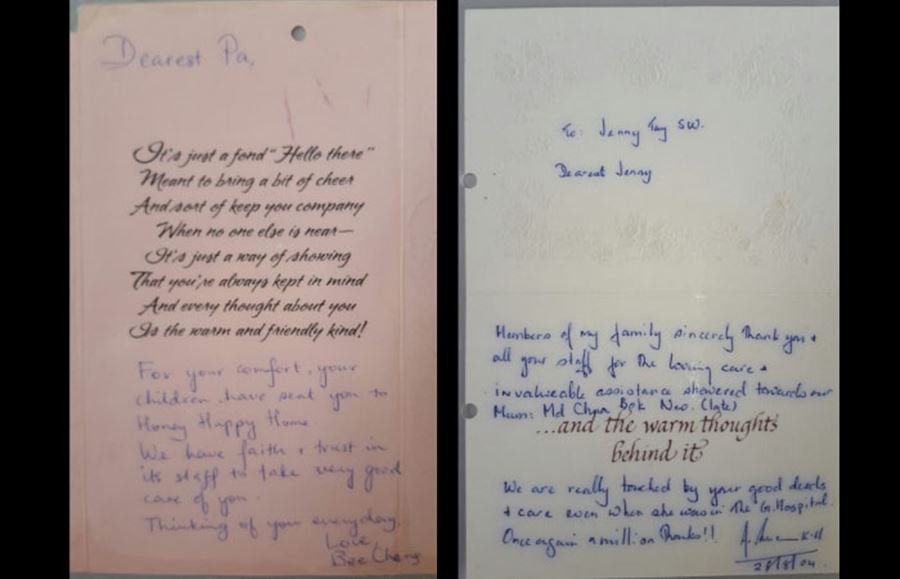 Dearest Pa,
It's just a fond "Hello there"
Meant to bring a bit of cheer
And sort of keep you company
When no one else is near—
It's just a way of showing
That you're always kept in mind
And every thought about you
Is the warm and friendly kind!
For your comfort, your
children have sent you to
Honey Happy Home.
We have faith + trust in
its staff to take very good
care of you.
Thinking of you everyday.
Love,
Bee Cheng
To: Jenny Tay SW.
Dearest Jenny
Members of my family sincerely thank you +
all your staff for the loving care +
invalueable assistance showered towards our
Mum: Md Chua Bek Neo. (late)
...and the warm thoughts
behind it
We are really touched by your good deeds
+ care even when she was in The G. Hospital.
Once again a million Thanks!!
28/8/04